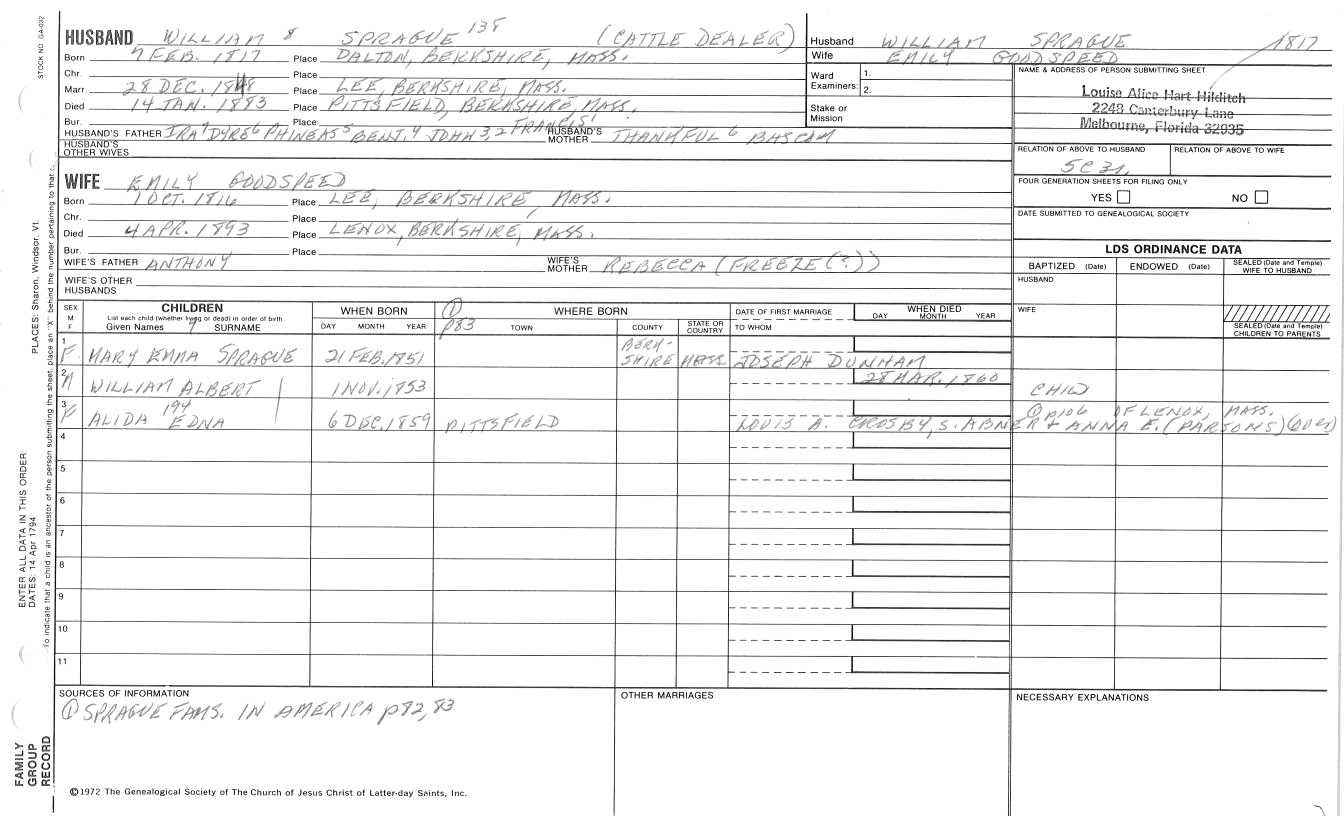 STOCK NO. GA-032
HUSBAND WILLIAM 8 SPRAGUE 138 (CATTLE DEALER)
Born 7 FEB. 1817 Place DALTON, BERKSHIRE, MASS.
Chr. Place
Marr. 28 DEC. 1848 Place LEE, BERKSHIRE, MASS.
Died 14 JAN. 1883 Place PITTSFIELD, BERKSHIRE, MASS.
Bur. Place
HUSBAND'S FATHER IRA 7 DYRE 6 PHINEAS 5 BENJ. 4 JOHN 3 2 FRANCIS 1 HUSBAND'S MOTHER THANKFUL 6 BASCOM
HUSBAND'S OTHER WIVES
WIFE EMILY GOODSPEED
Born 1 OCT. 1816 Place LEE, BERKSHIRE, MASS.
Chr. Place
Died 4 APR. 1893 Place LENOX, BERKSHIRE, MASS.
Bur. Place
WIFE'S FATHER ANTHONY WIFE'S MOTHER REBECCA (FREEZE(?))
WIFE'S OTHER HUSBANDS
Husband WILLIAM SPRAGUE 1817
Wife EMILY GOODSPEED
Ward Examiners: 1. 2.
Stake or Mission
NAME & ADDRESS OF PERSON SUBMITTING SHEET
Louise Alice Hart Hilditch
2248 Canterbury Lane
Melbourne, Florida 32935
RELATION OF ABOVE TO HUSBAND RELATION OF ABOVE TO WIFE
5C3r.
FOUR GENERATION SHEETS FOR FILING ONLY
YES NO
DATE SUBMITTED TO GENEALOGICAL SOCIETY
LDS ORDINANCE DATA
BAPTIZED (Date) ENDOWED (Date) SEALED (Date and Temple) WIFE TO HUSBAND
HUSBAND
WIFE
SEALED (Date and Temple) CHILDREN TO PARENTS
SEX M F CHILDREN WHEN BORN ① p83 WHERE BORN DATE OF FIRST MARRIAGE WHEN DIED
List each child (whether living or dead) in order of birth
Given Names SURNAME DAY MONTH YEAR TOWN COUNTY STATE OR COUNTRY TO WHOM DAY MONTH YEAR
1 F MARY EMMA SPRAGUE 21 FEB. 1851 BERK-SHIRE MASS JOSEPH DUNHAM
2 M WILLIAM ALBERT 1 NOV. 1853 28 MAR. 1860 CHILD
3 F ALIDA 194 EDNA 6 DEC. 1859 PITTSFIELD LOUIS A. CROSBY, S. ABNER & ANNA E. (PARSONS) (over)
① p106 OF LENOX, MASS.
4
5
6
7
8
9
10
11
SOURCES OF INFORMATION
① SPRAGUE FAMS. IN AMERICA p82, 83
OTHER MARRIAGES
NECESSARY EXPLANATIONS
©1972 The Genealogical Society of The Church of Jesus Christ of Latter-day Saints, Inc.
PLACES: Sharon, Windsor, Vt.
ENTER ALL DATA IN THIS ORDER:
DATES: 14 Apr 1794
To indicate that a child is an ancestor of the person submitting the sheet, place an "X" behind the number pertaining to that
FAMILY GROUP RECORD